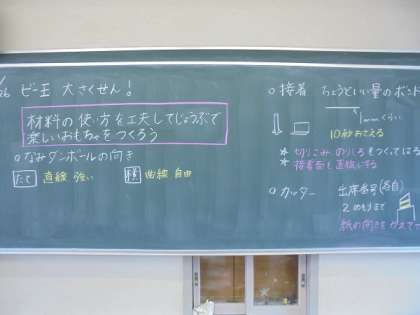 26 ビー玉 大さくせん!
材料の使い方を工夫してじょうぶで
楽しいおもちゃをつくろう
○なみダンボールの向き
たて 直線 強い
横 曲線 自由
○接着 ちょうどいい量のボンド
1mmくらい
10秒おさえる
*切りこみ、のりしろをつくってはる
*接着面を直線にする
○カッター 出席番号(各自)
2めもりまで
紙の向きをかえて